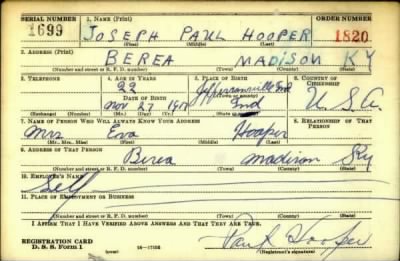 SERIAL NUMBER 1. NAME (Print) ORDER NUMBER
1699 JOSEPH PAUL HOOPER 1820
(First) (Middle) (Last)
2. ADDRESS (Print)
BEREA MADISON KY
(Number and street or R. F. D. number) (Town) (County) (State)
3. TELEPHONE 4. AGE IN YEARS 5. PLACE OF BIRTH 6. COUNTRY OF CITIZENSHIP
22 Jeffersonville Ind
DATE OF BIRTH (Town or county)
Nov 27 Ind U.S.A.
(Exchange) (Number) (Mo.) (Day) (Yr.) (State or country)
7. NAME OF PERSON WHO WILL ALWAYS KNOW YOUR ADDRESS 8. RELATIONSHIP OF THAT PERSON
Mrs Eva Hooper
(Mr., Mrs., Miss) (First) (Middle) (Last)
9. ADDRESS OF THAT PERSON
Berea Madison Ky
(Number and street or R. F. D. number) (Town) (County) (State)
10. EMPLOYER'S NAME
Self
11. PLACE OF EMPLOYMENT OR BUSINESS
(Number and street or R. F. D. number) (Town) (County) (State)
I AFFIRM THAT I HAVE VERIFIED ABOVE ANSWERS AND THAT THEY ARE TRUE.
REGISTRATION CARD
D. S. S. Form 1 16—17105 Paul Hooper
(Registrant's signature)